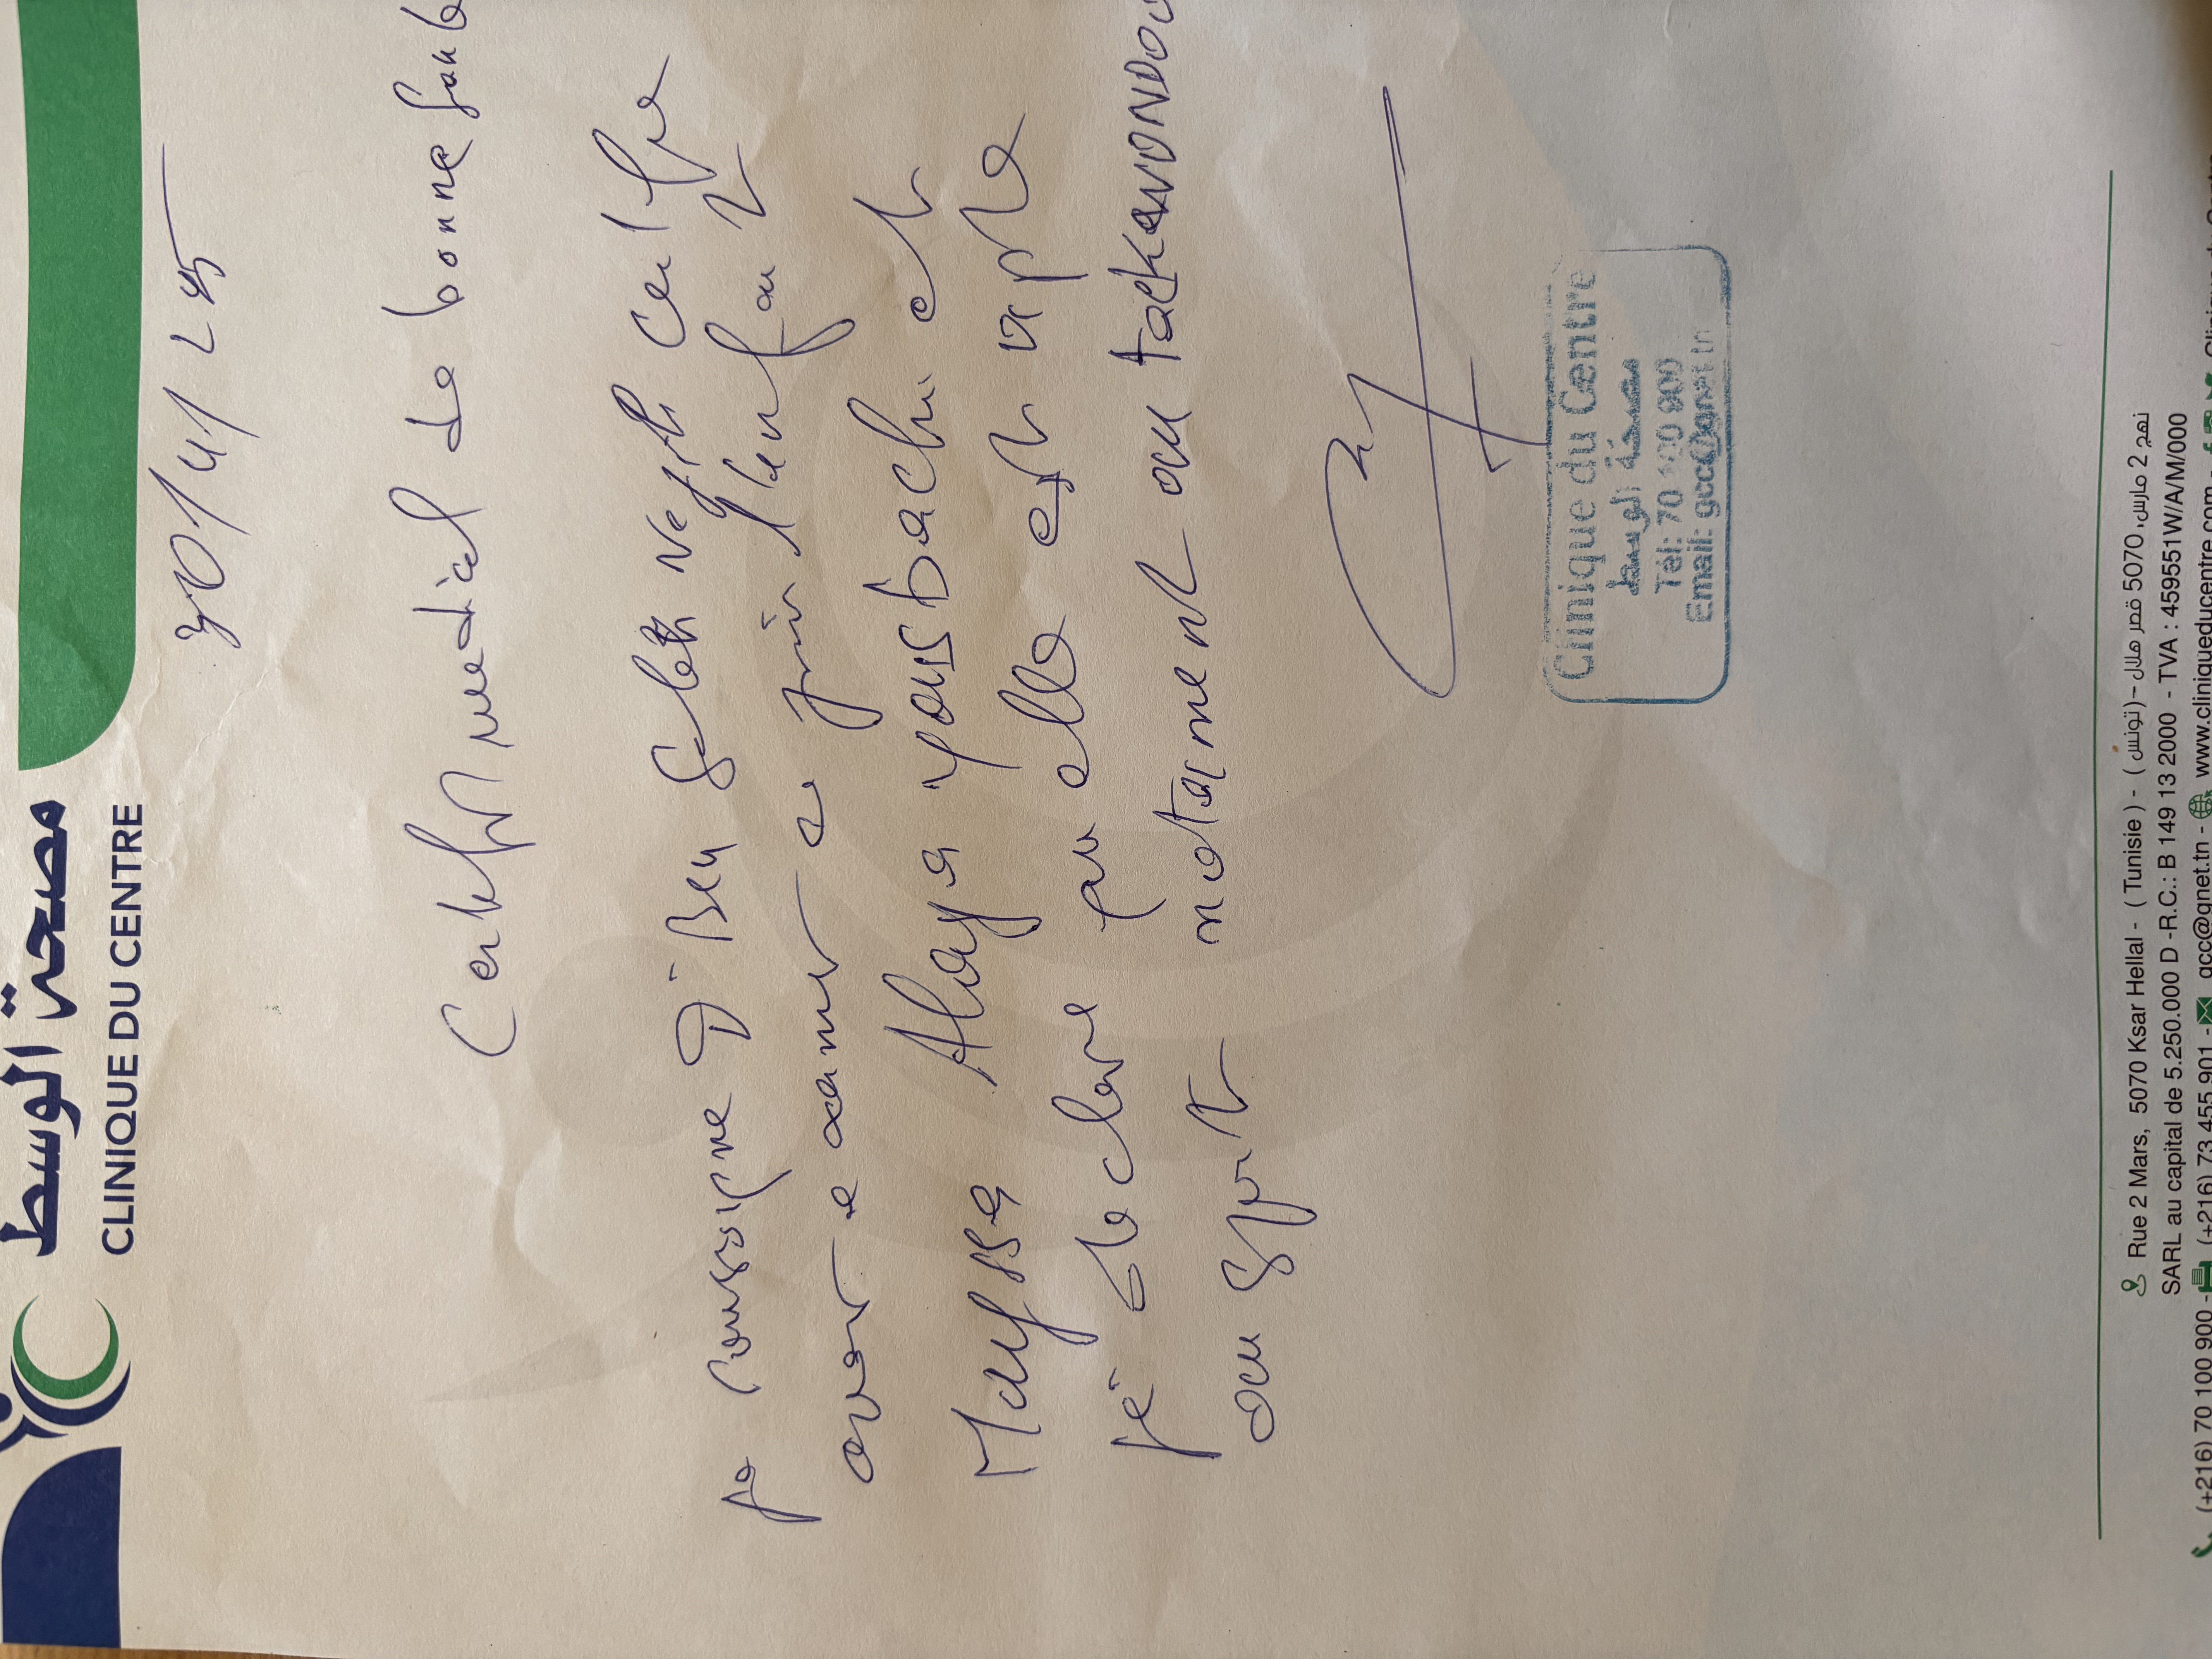 مصحة الوسط
CLINIQUE DU CENTRE
30/4/25
Certificat medical de bonne sante
Je soussigne Dr Ben Salah Nejib Certifie
avoir examine ce jour l'enfant
Mayssa Alaya yousbachi et
je declare que elle est apte
au sport notamment au taekwondo
Clinique du Centre
مصحة الوسط
Tél: 70 100 900
Email: gcc@gnet.tn
Rue 2 Mars, 5070 Ksar Hellal - ( Tunisie ) - ( تونس ) - نهج 2 مارس، 5070 قصر هلال
SARL au capital de 5.250.000 D -R.C.: B 149 13 2000 - TVA : 459551W/A/M/000
(+216) 70 100 900 - (+216) 73 455 901 - gcc@gnet.tn - www.cliniqueducentre.com -